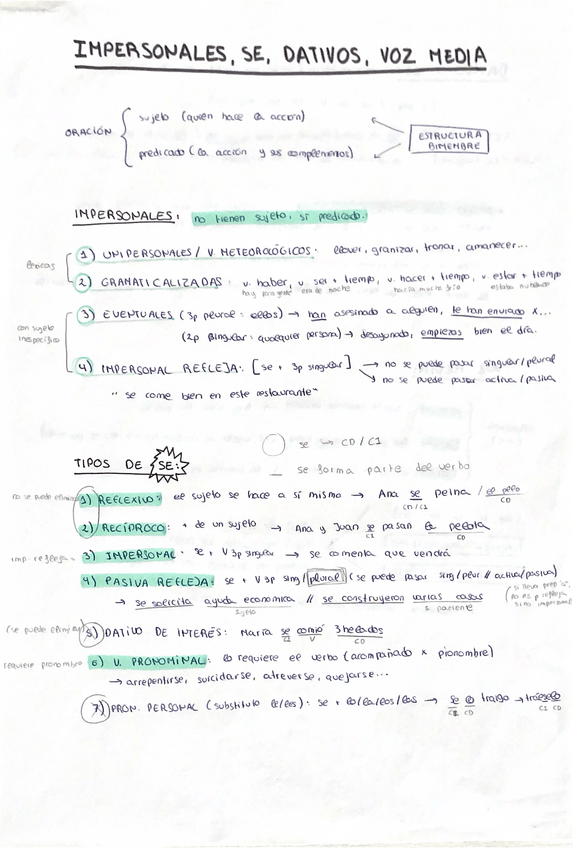 IMPERSONALES, SE, DATIVOS, VOZ MEDIA
ORACIÓN
sujeto (quien hace la acción)
predicado (la acción y sus complementos)
ESTRUCTURA
BIMEMBRE
IMPERSONALES: no tienen sujeto, sí predicado.
1) UNIPERSONALES / V. METEOROLÓGICOS: llover, granizar, tronar, amanecer...
léxicas
2) GRAMATICALIZADAS: v. haber, v. ser + tiempo, v. hacer + tiempo, v. estar + tiempo
hay era de noche hacía mucho frío estaba nublado
3) EVENTUALES (3p plural: ellos) → han asesinado a alguien, te han enviado x...
con sujeto
inespecífico
(2p singular: cualquier persona) → desayunado, empiezas bien el día.
4) IMPERSONAL REFLEJA: [se + 3p singular] → no se puede pasar singular/plural
→ no se puede pasar activa/pasiva
"se come bien en este restaurante"
se → CD/CI
TIPOS DE SE:
— se forma parte del verbo
no se puede eliminar
1) REFLEXIVO: el sujeto se hace a sí mismo → Ana se peina / el pelo
CD/CI CD
2) RECÍPROCO: + de un sujeto → Ana y Juan se pasan la pelota
CI CD
imp. refleja
3) IMPERSONAL: se + V 3p singular → se comenta que vendrá
4) PASIVA REFLEJA: se + V 3p sing/plural (se puede pasar sing/plur // activa/pasiva)
→ se solicita ayuda económica // se construyeron varias casas
sujeto s. paciente
si lleva prep "a",
no es p refleja
sino impersonal
(se puede eliminar)
5) DATIVO DE INTERÉS: María se comió 3 helados
CI V CD
requiere pronombre
6) V. PRONOMINAL: lo requiere el verbo (acompañado x pronombre)
→ arrepentirse, suicidarse, atreverse, quejarse...
7) PRON. PERSONAL (substituto le/les): se + lo/la/los/las → se lo traigo → tráeselo
CI CD CI CD